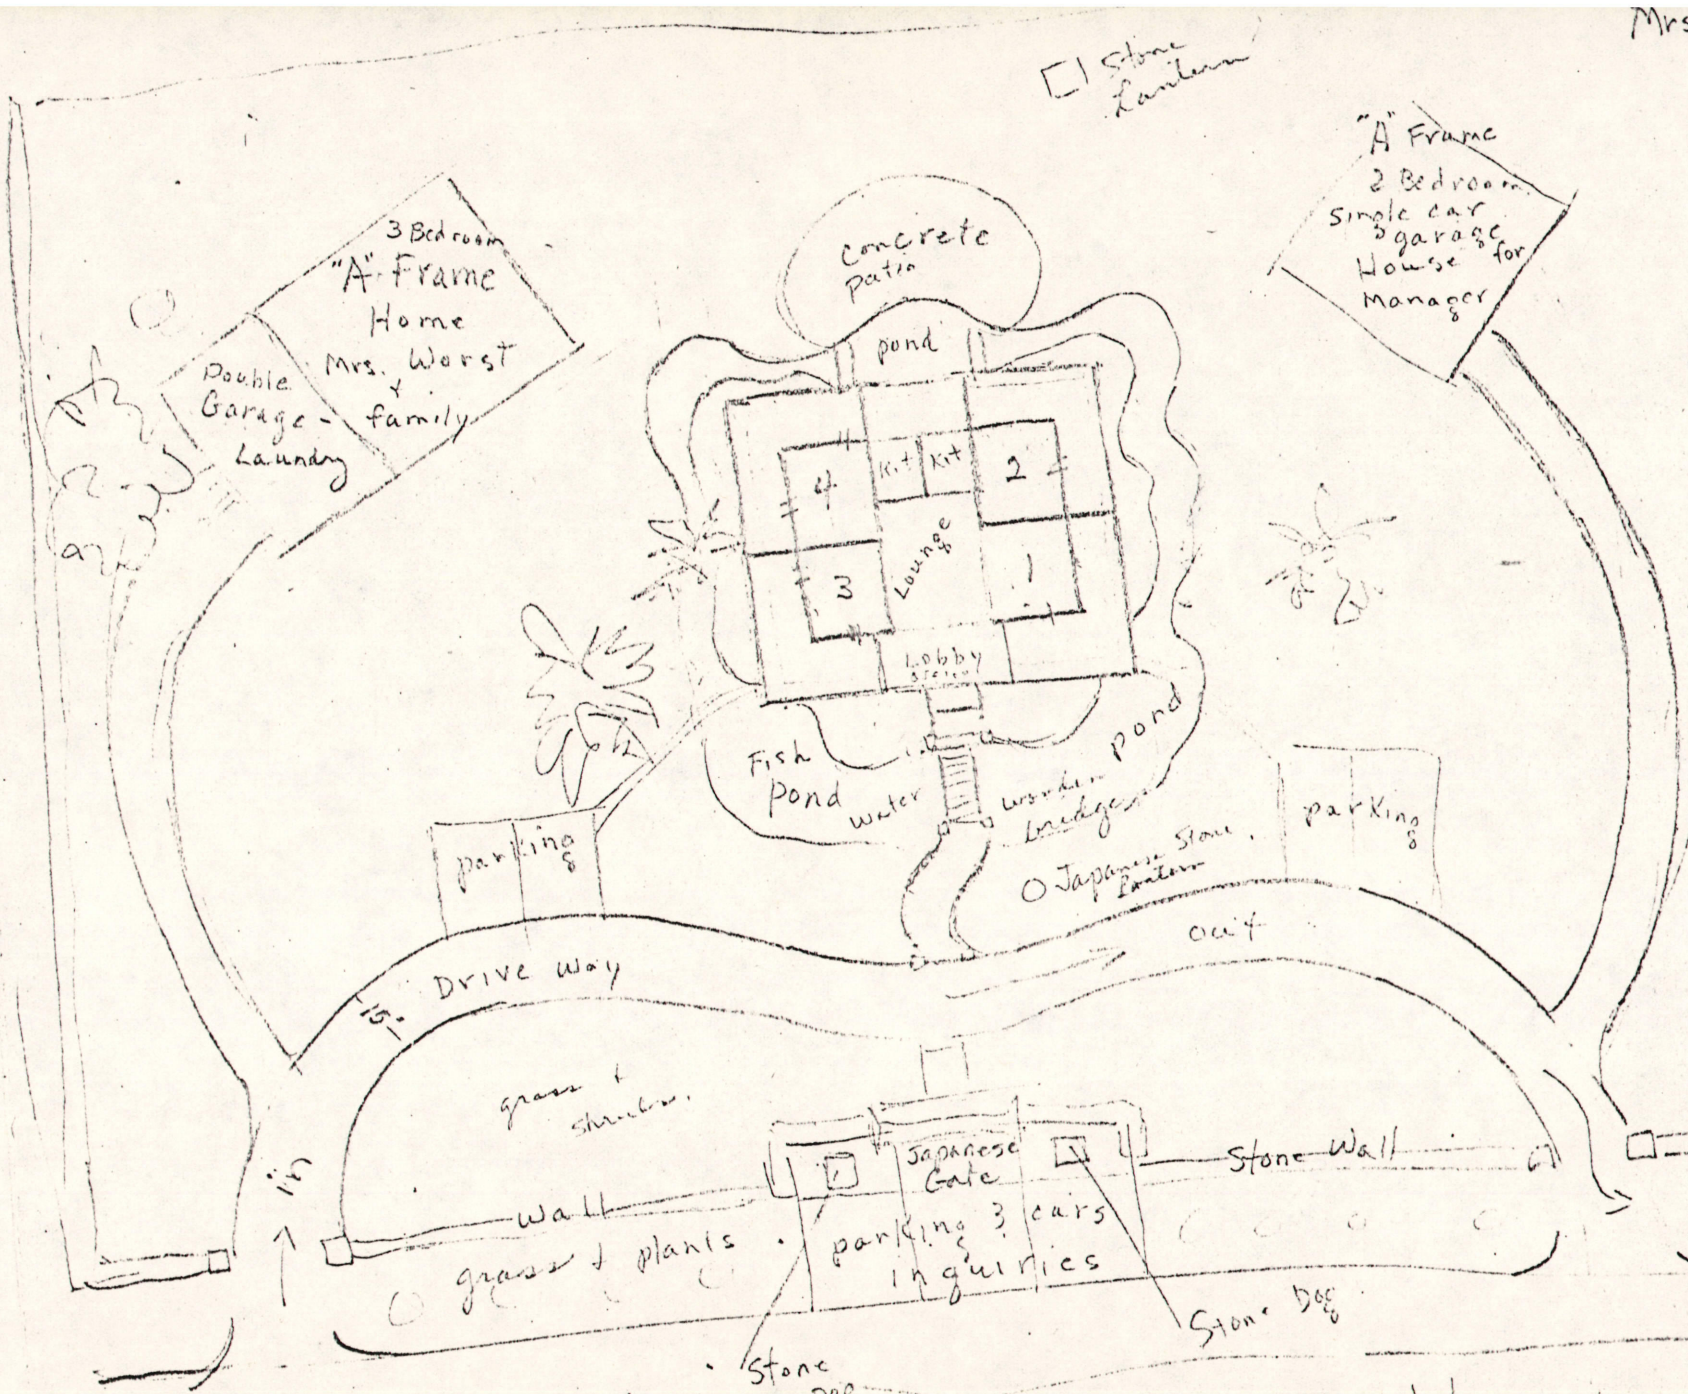 Mrs
Stone
Lantern
"A" Frame
2 Bedroom
Single car
garage
House for
Manager
3 Bedroom
"A" Frame
Home
Mrs. Worst
+
family
Double
Garage -
Laundry
Concrete
patio
pond
4
Kit
Kit
2
Lounge
3
1
Lobby
Fish
Pond
Water
Wooden
bridge
pond
parking
parking
Japanese Stone
Lantern
Drive Way
out
15'
grass +
shrubs.
15'
Japanese
Gate
Stone Wall
Wall
grass + plants
parking 3 cars
inquiries
Stone Dog
Stone
Dog